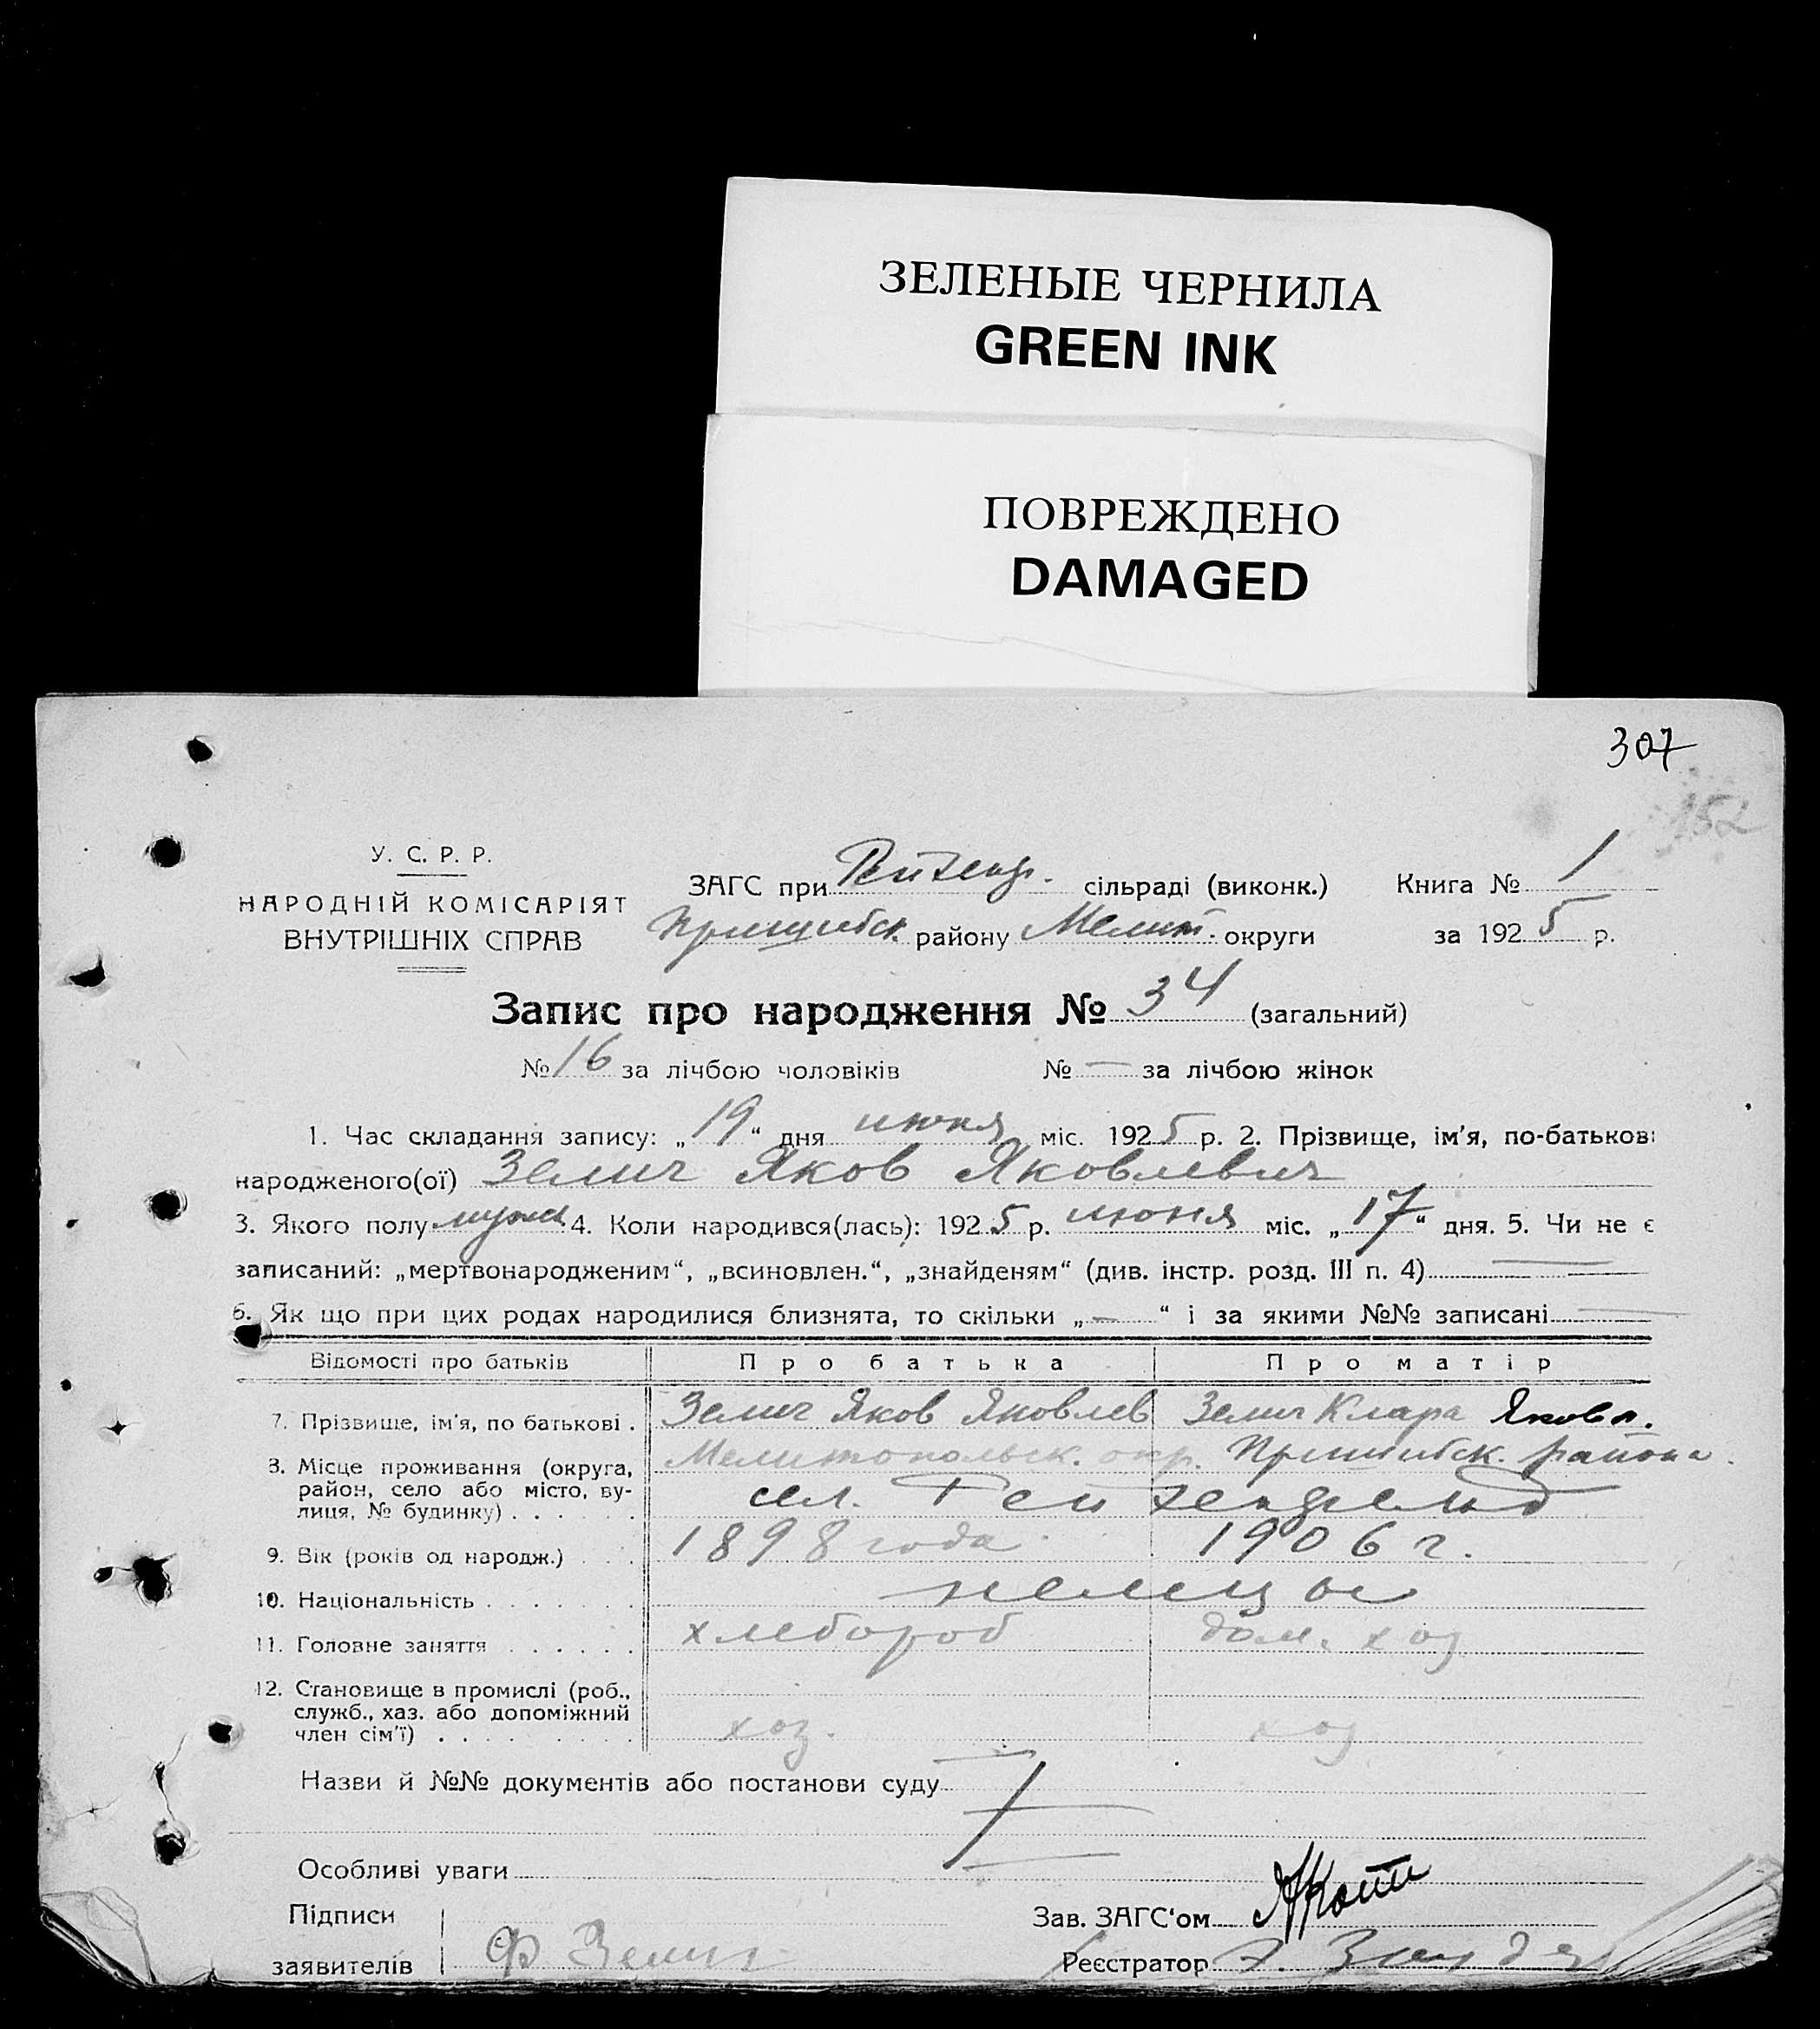 ЗЕЛЕНЫЕ ЧЕРНИЛА
GREEN INK
ПОВРЕЖДЕНО
DAMAGED
307
152
У. С. Р. Р.
НАРОДНІЙ КОМІСАРІЯТ
ВНУТРІШНІХ СПРАВ
ЗАГС при Гейдельб. сільраді (виконк.) Книга № 1
Пришибск. району Мелит. округи за 1925 р.
Запис про народження № 34 (загальний)
№ 16 за лічбою чоловіків № — за лічбою жінок
1. Час складання запису: „19“ дня июня міс. 1925 р. 2. Прізвище, ім'я, по-батькові
народженого(ої) Зелич Яков Яковлевич
3. Якого полу мужс. 4. Коли народився(лась): 1925 р. июня міс. „17“ дня. 5. Чи не є
записаний: „мертвонародженим“, „всиновлен.“, „знайденям“ (див. інстр. розд. III п. 4) —
6. Як що при цих родах народилися близнята, то скільки „—“ і за якими №№ записані —
Відомості про батьків Про батька Про матір
7. Прізвище, ім'я, по батькові . Зелич Яков Яковлев Зелич Клара Яковл.
8. Місце проживання (округа, район, село або місто, вулиця, № будинку) . . . . . . Мелитопольск. окр. Пришибск. района.
сел.
9. Вік (років од народж.) . . . 1898 года 1906 г.
10. Національність . . . . . . . немецы
11. Головне заняття . . . . . . хлебороб дом. хоз
12. Становище в промислі (роб., служб., хаз. або допоміжний член сім'ї) . . . . . . . . . хоз. хоз
Назви й №№ документів або постанови суду
Особливі уваги
Підписи
заявителів Ф Зелич
Зав. ЗАГС'ом
Реєстратор